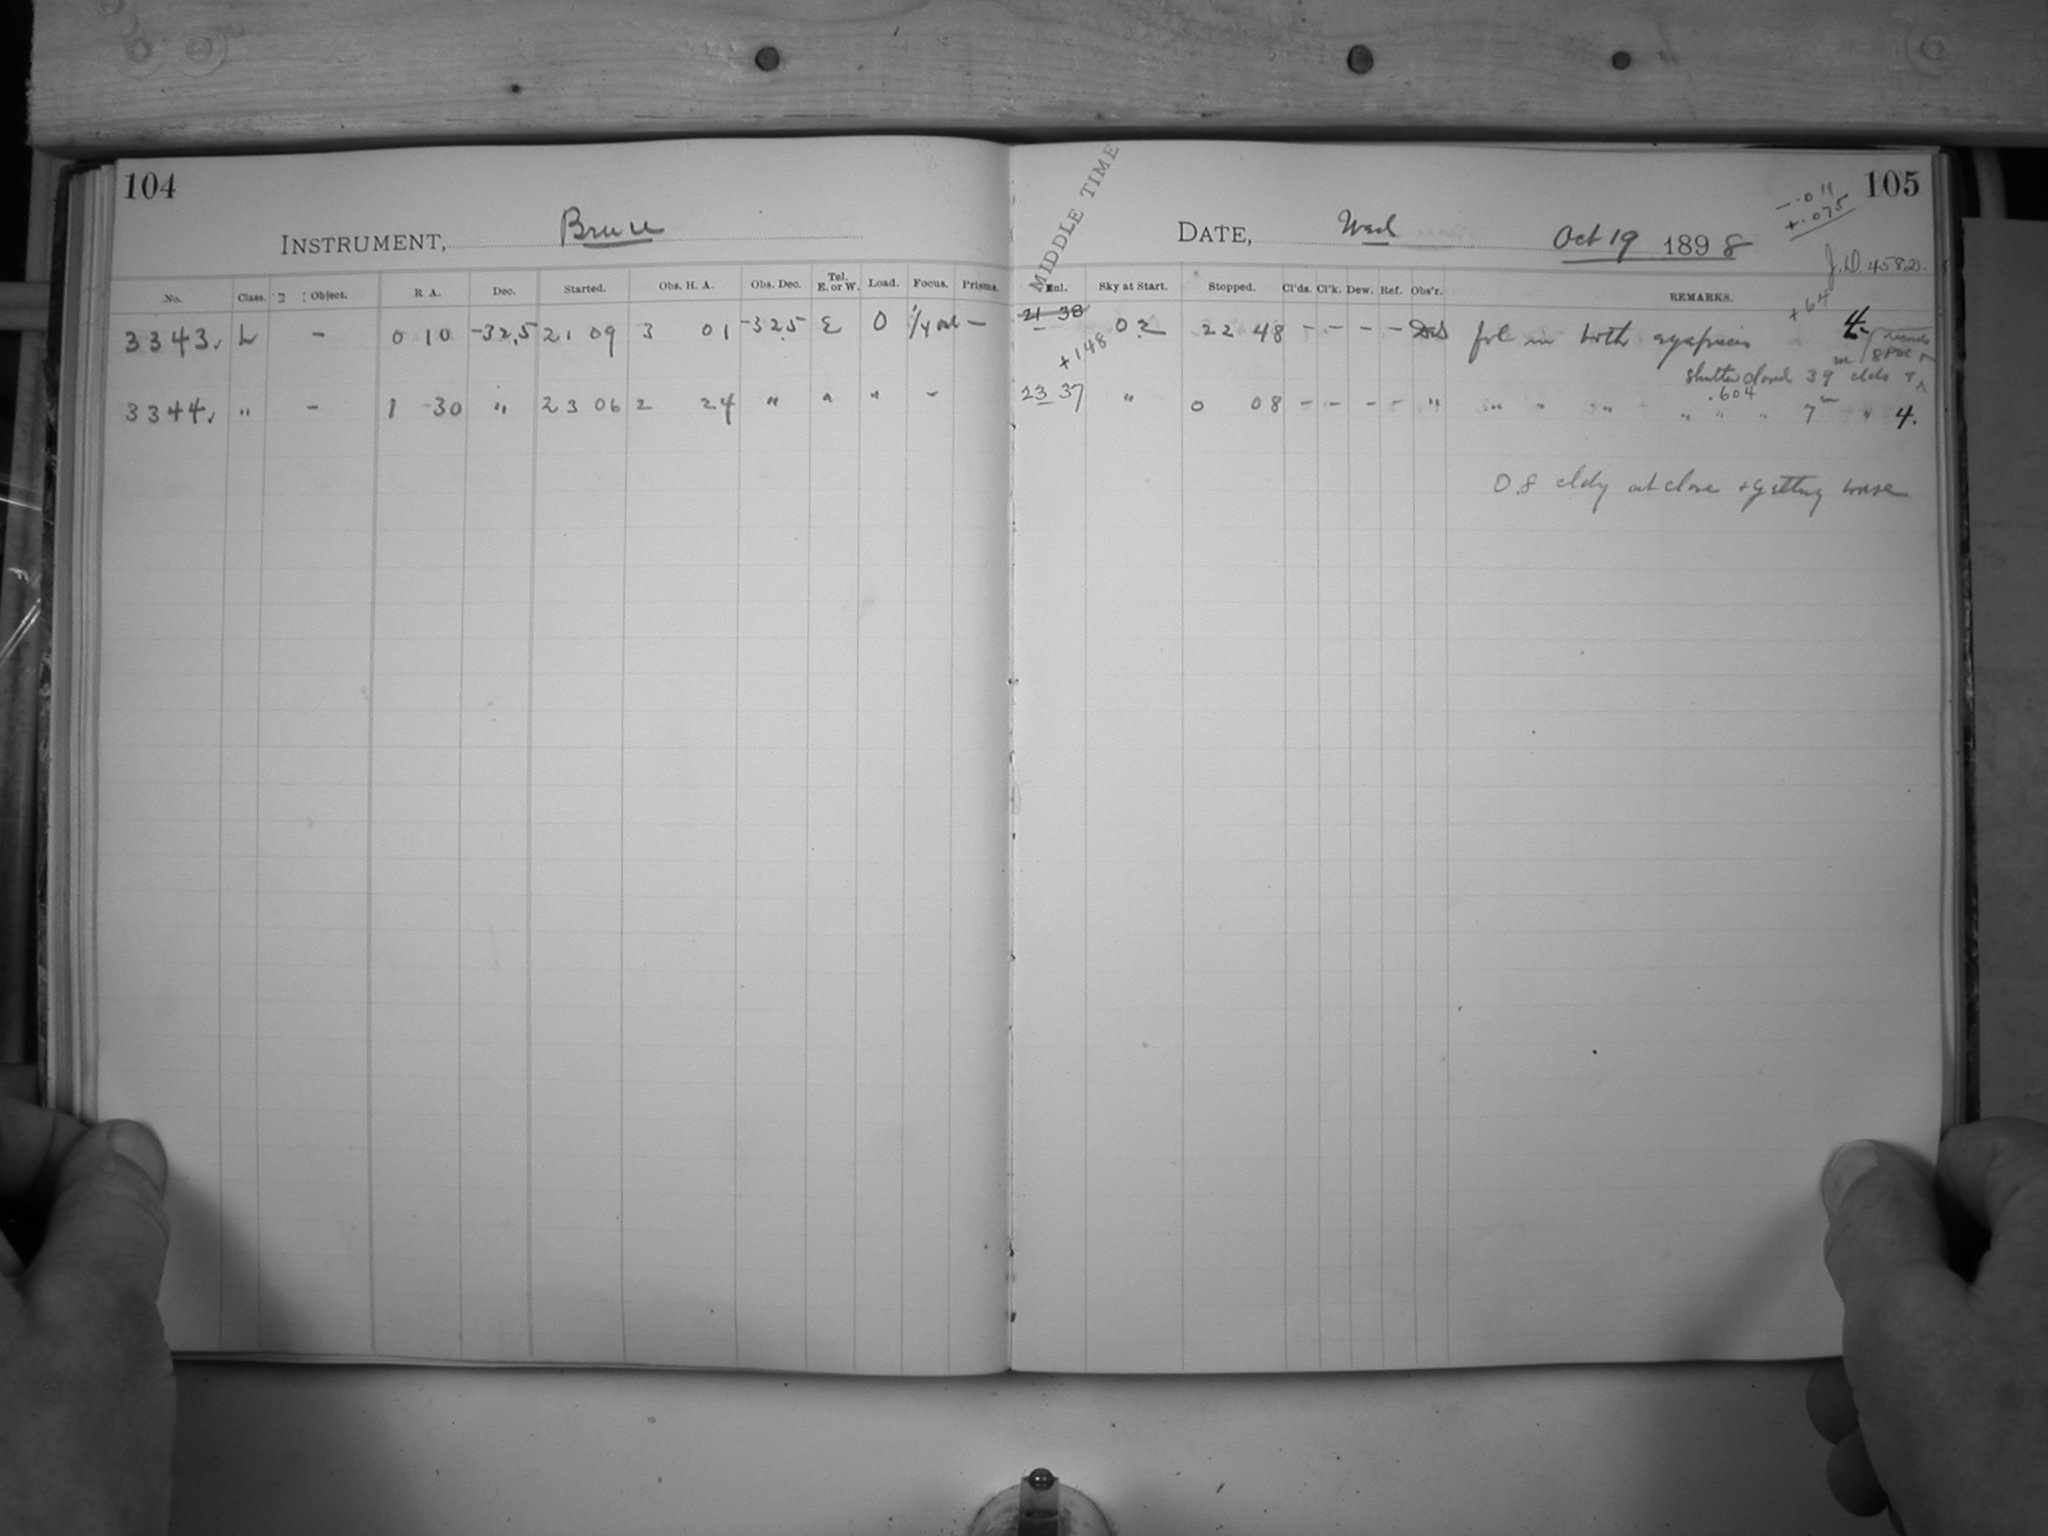 104
INSTRUMENT, Bruce
No. Class. Object. R A. Dec. Started. Obs. H. A. Obs. Dec. Tel. E. or W. Load. Focus. Prisms.
3343. L - 0 10 -32.5 21 09 3 01 -32.5 E 0 1/4 out -
3344. " - 1 30 " 23 06 2 24 " " " -
MIDDLE TIME
105
-.011
+.075
DATE, Wed Oct 19 1898
J.D. 4582
Enl. Sky at Start. Stopped. Cl'ds. Cl'k. Dew. Ref. Obs'r. REMARKS.
+64
21 38 02 22 48 - - - - fol in both 4
+148
shutter closed 39 m clds
.604
23 37 " 0 08 - - - - " " " " " " " 7 m " 4.
0.8 cldy at close + getting worse